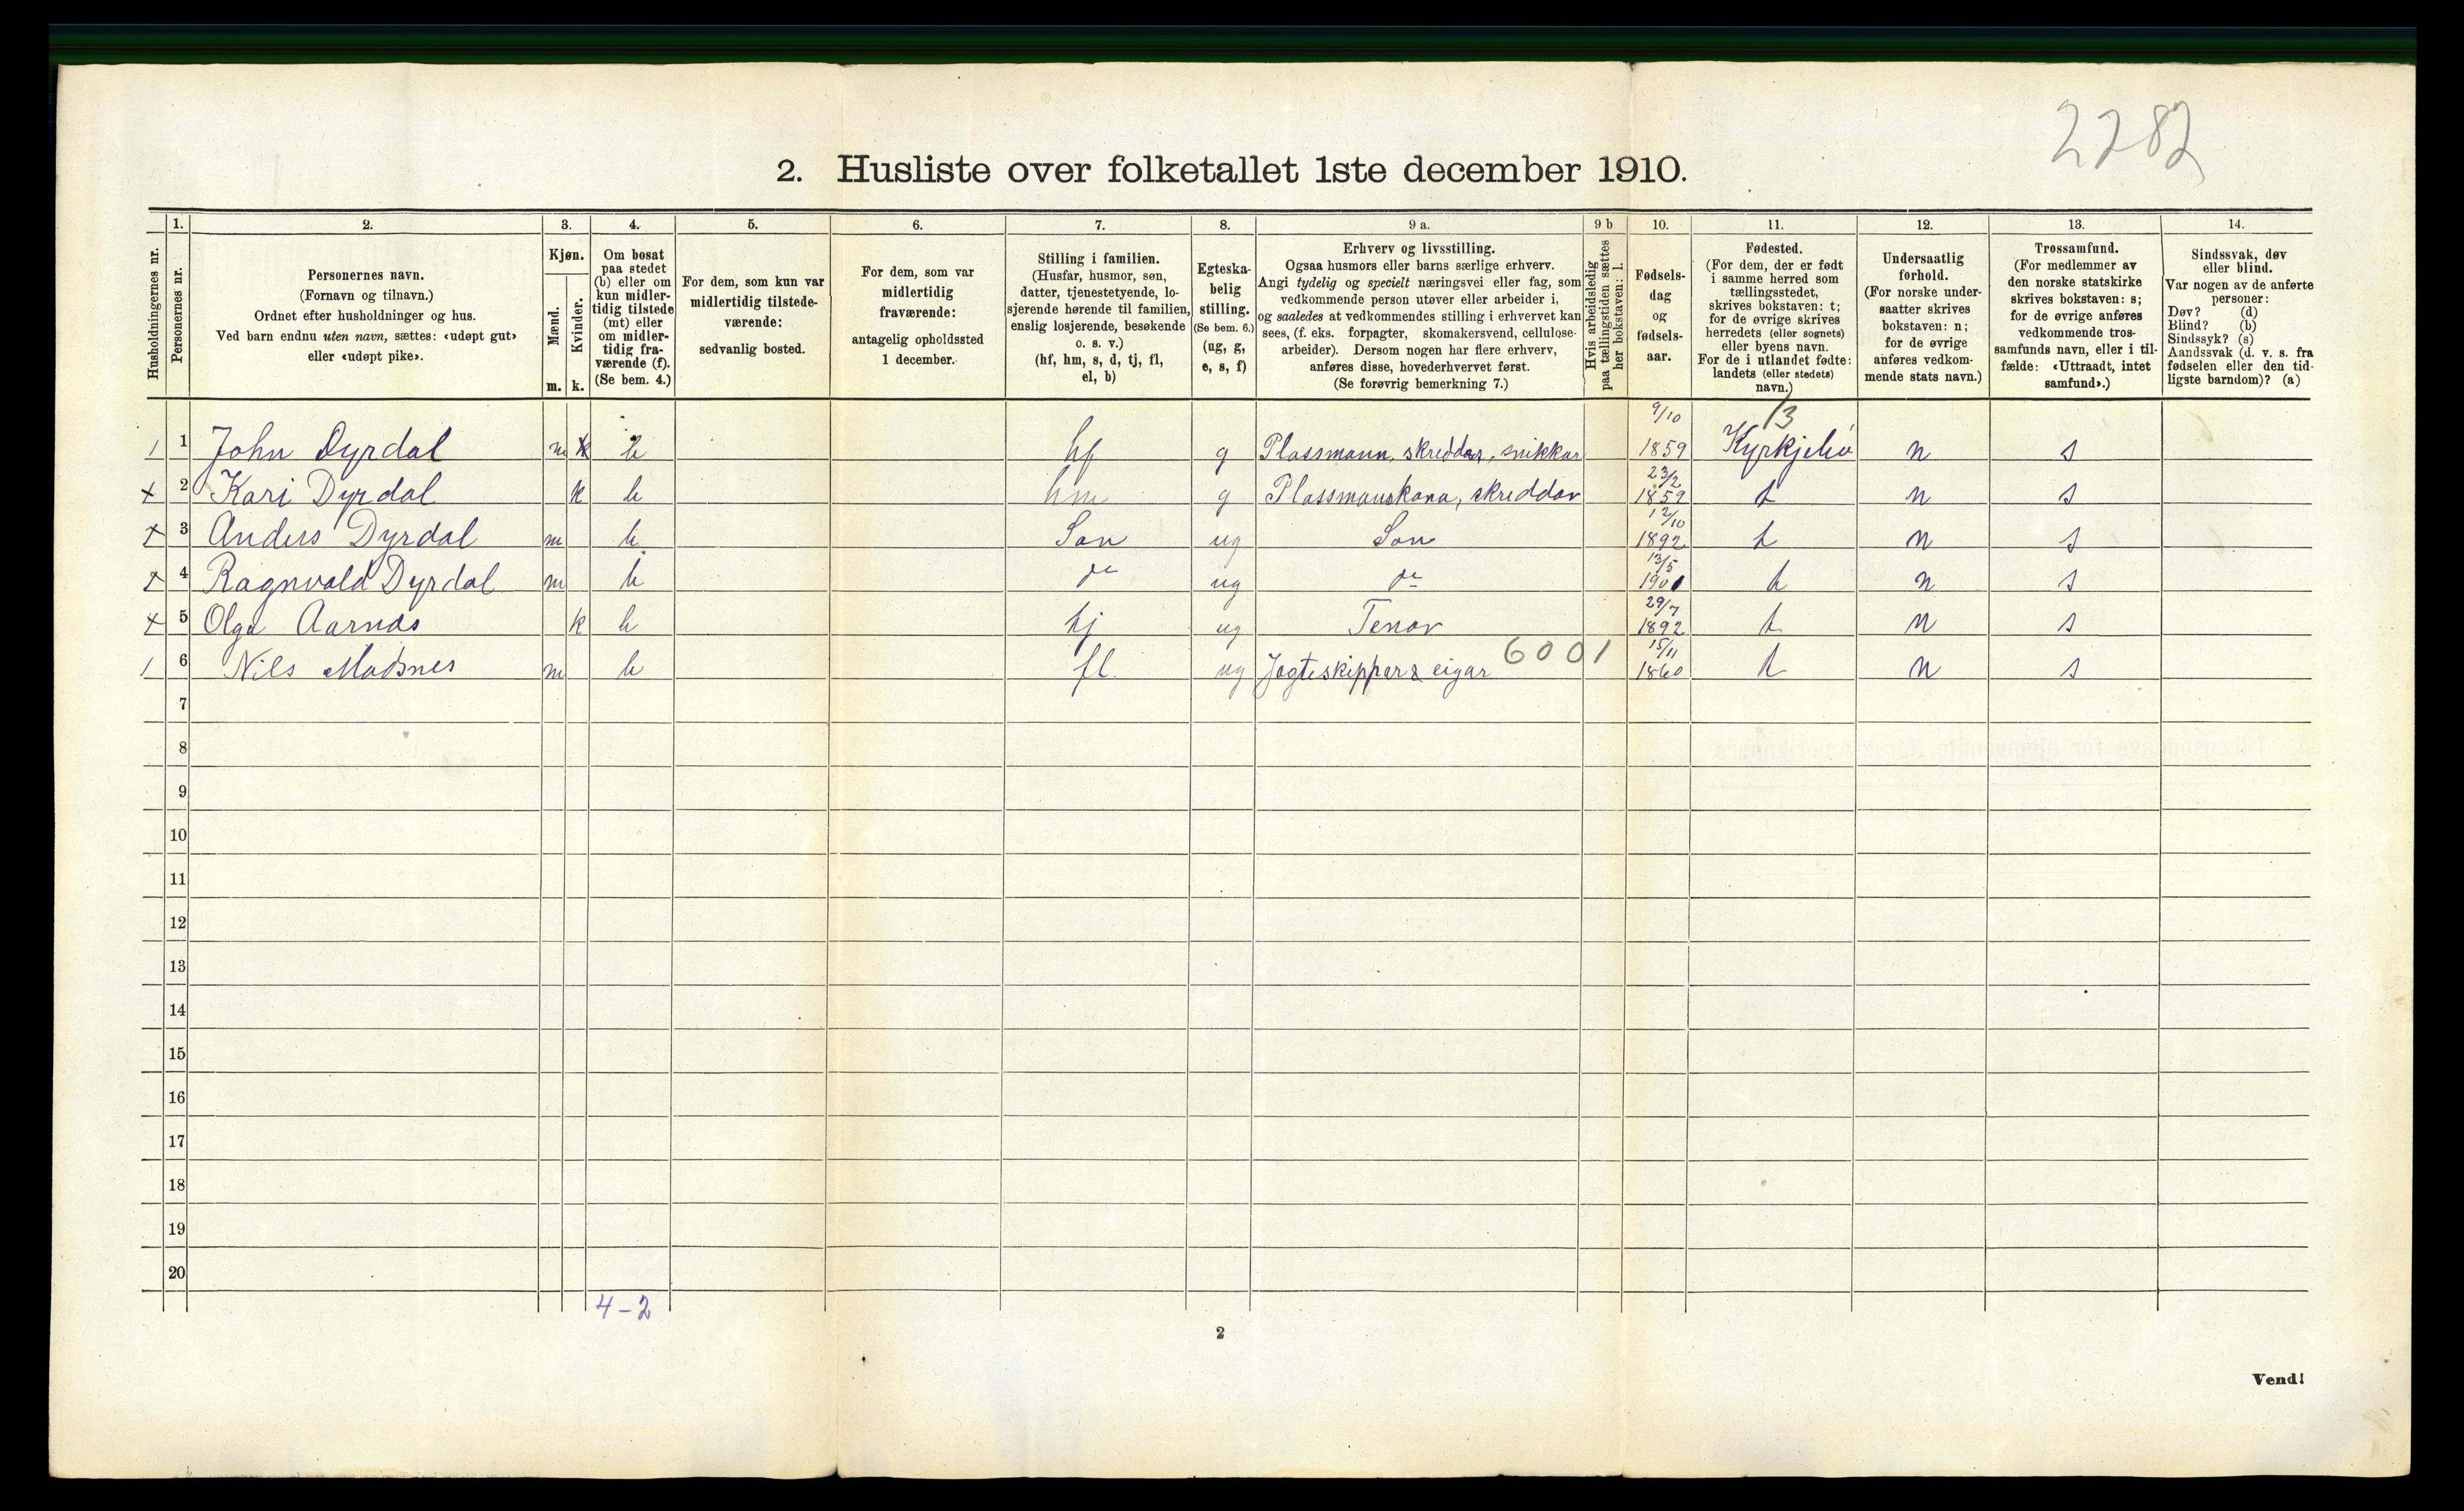 2282
2. Husliste over folketallet 1ste december 1910.
Husholdningernes nr.
1.
Personernes nr.
2.
Personernes navn.
(Fornavn og tilnavn.)
Ordnet efter husholdninger og hus.
Ved barn endnu uten navn, sættes: «udøpt gut»
eller «udøpt pike».
3.
Kjøn.
Mænd.
Kvinder.
m. k.
4.
Om bosat
paa stedet
(b) eller om
kun midler-
tidig tilstede
(mt) eller
om midler-
tidig fra-
værende (f).
(Se bem. 4.)
5.
For dem, som kun var
midlertidig tilstede-
værende:
sedvanlig bosted.
6.
For dem, som var
midlertidig
fraværende:
antagelig opholdssted
1 december.
7.
Stilling i familien.
(Husfar, husmor, søn,
datter, tjenestetyende, lo-
sjerende hørende til familien,
enslig losjerende, besøkende
o. s. v.)
(hf, hm, s, d, tj, fl,
el, b)
8.
Egteska-
belig
stilling.
(Se bem. 6.)
(ug, g,
e, s, f)
9 a.
Erhverv og livsstilling.
Ogsaa husmors eller barns særlige erhverv.
Angi tydelig og specielt næringsvei eller fag, som
vedkommende person utøver eller arbeider i,
og saaledes at vedkommendes stilling i erhvervet kan
sees, (f. eks. forpagter, skomakersvend, cellulose-
arbeider). Dersom nogen har flere erhverv,
anføres disse, hovederhvervet først.
(Se forøvrig bemerkning 7.)
9 b
Hvis arbeidsledig
paa tællingstiden sættes
her bokstaven: l.
10.
Fødsels-
dag
og
fødsels-
aar.
11.
Fødested.
(For dem, der er født
i samme herred som
tællingsstedet,
skrives bokstaven: t;
for de øvrige skrives
herredets (eller sognets)
eller byens navn.
For de i utlandet fødte:
landets (eller stedets)
navn.)
12.
Undersaatlig
forhold.
(For norske under-
saatter skrives
bokstaven: n;
for de øvrige
anføres vedkom-
mende stats navn.)
13.
Trossamfund.
(For medlemmer av
den norske statskirke
skrives bokstaven: s;
for de øvrige anføres
vedkommende tros-
samfunds navn, eller i til-
fælde: «Uttraadt, intet
samfund».)
14.
Sindssvak, døv
eller blind.
Var nogen av de anførte
personer:
Døv? (d)
Blind? (b)
Sindssyk? (s)
Aandssvak (d. v. s. fra
fødselen eller den tid-
ligste barndom)? (a)
9/10 13
1 1 John Dyrdal m k b hf g Plassmann, skreddar, snikkar 1859 Kyrkjebø n s
23/2
x 2 Kari Dyrdal k b hm g Plassmanskona, skreddar 1859 t n s
12/10
x 3 Anders Dyrdal m b Son ug Son 1892 t n s
13/5
x 4 Ragnvald Dyrdal m b do ug do 1901 t n s
29/7
x 5 Olga Aarnas k b tj ug Tenar 1892 t n s
6001 15/11
1 6 Nils Madsnes m b fl. ug Jagteskippar & eigar 1860 t n s
7
8
9
10
11
12
13
14
15
16
17
18
19
20
4-2
2
Vend!